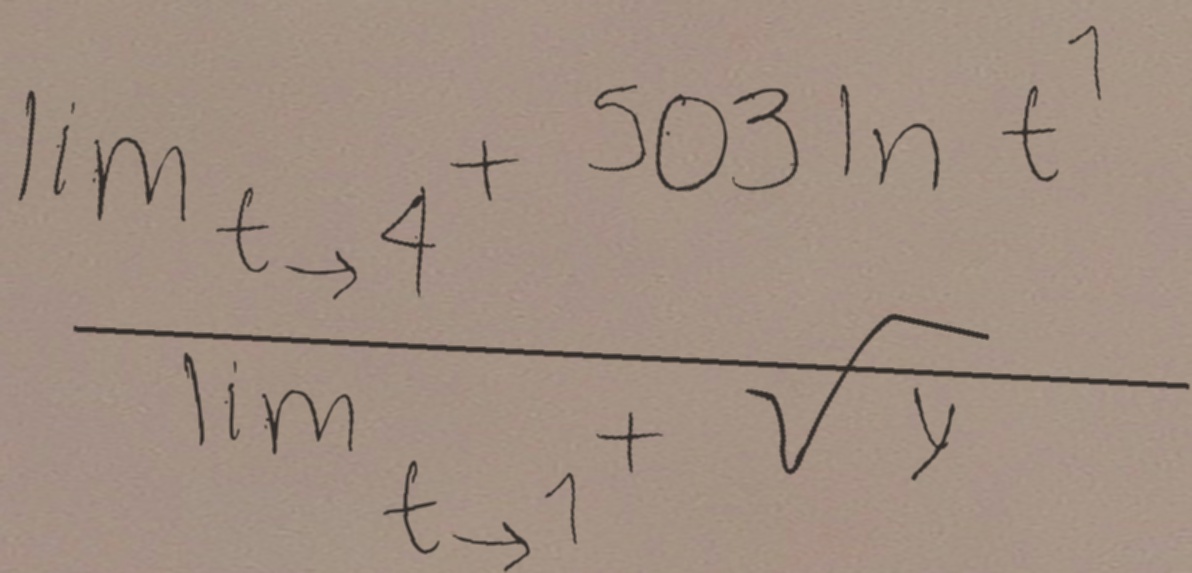 lim t→4⁺ 503 ln t¹
lim t→1⁺ √y